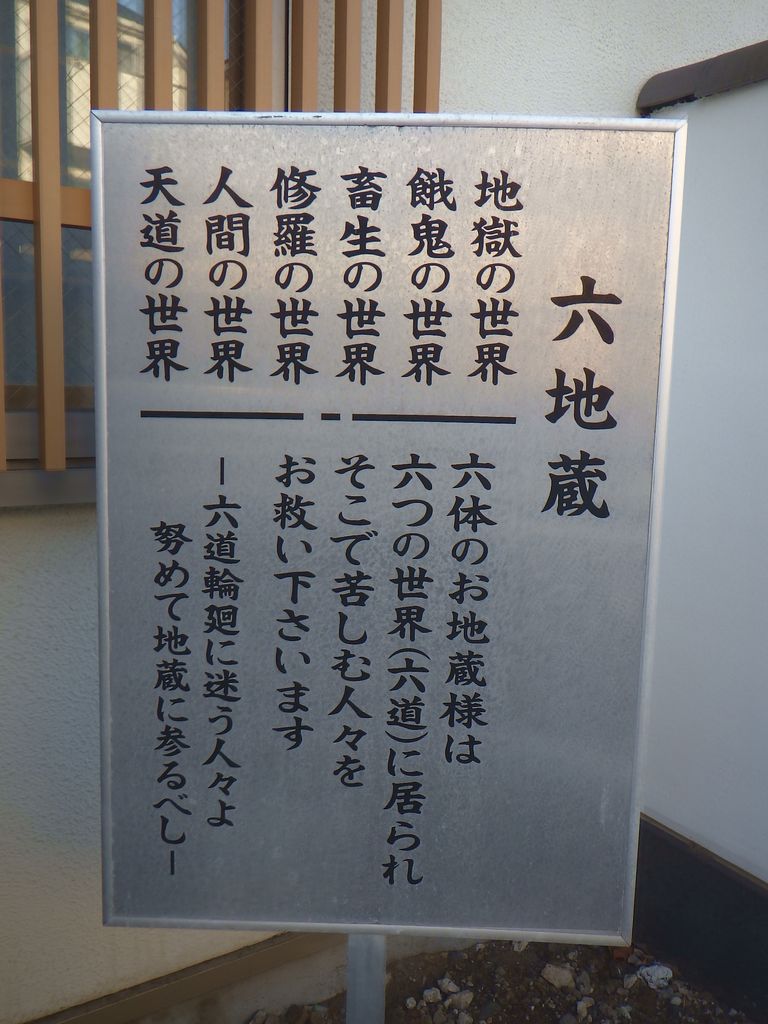 六地蔵
地獄の世界
餓鬼の世界
畜生の世界
修羅の世界
人間の世界
天道の世界
六体のお地蔵様は
六つの世界(六道)に居られ
そこで苦しむ人々を
お救い下さいます
ー六道輪廻に迷う人々よ
努めて地蔵に参るべしー